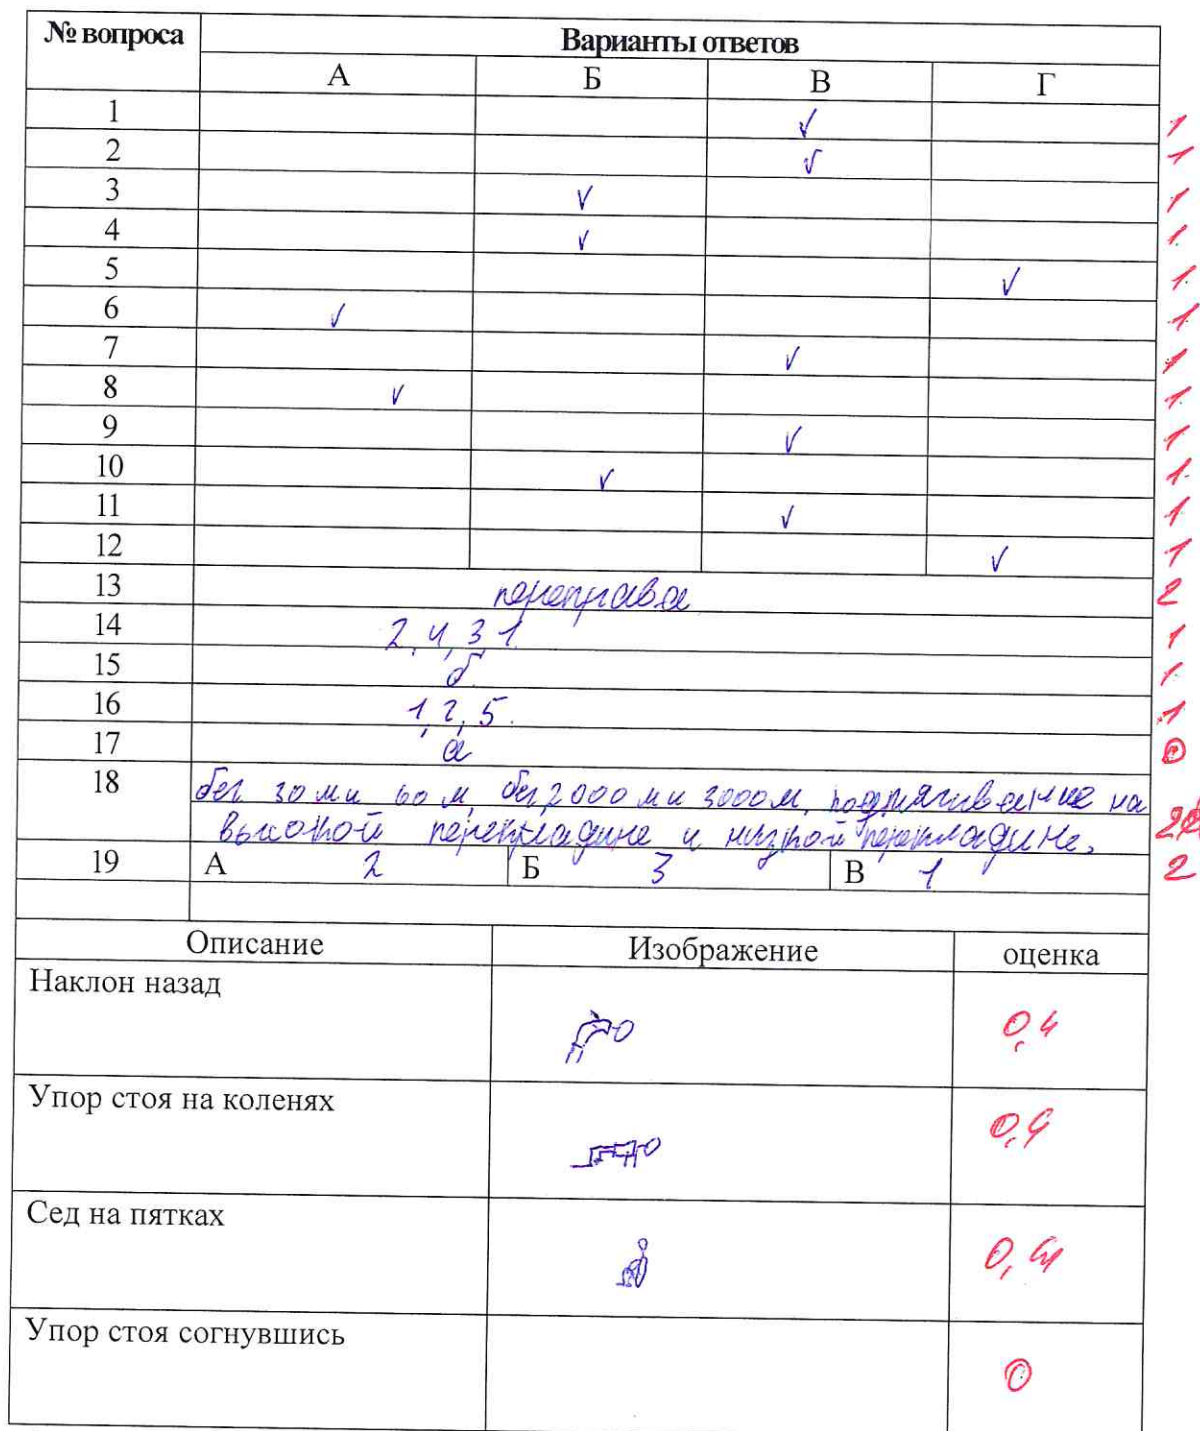 № вопроса Варианты ответов
А Б В Г
1 √ 1
2 √ 1
3 √ 1
4 √ 1.
5 √ 1.
6 √ 1
7 √ 1
8 √ 1.
9 √ 1
10 √ 1.
11 √ 1
12 √ 1
13 переправа 2
14 2, 4, 3, 1. 1
15 б. 1.
16 1, 2, 5. 1
17 а 0
18 бег 30 м и 60 м, бег 2000 м и 3000 м, подтягивание на
высокой перекладине и низкой перекладине.
19 А 2 Б 3 В 1 2
Описание Изображение оценка
Наклон назад 0,4
Упор стоя на коленях 0,4
Сед на пятках 0,4
Упор стоя согнувшись 0